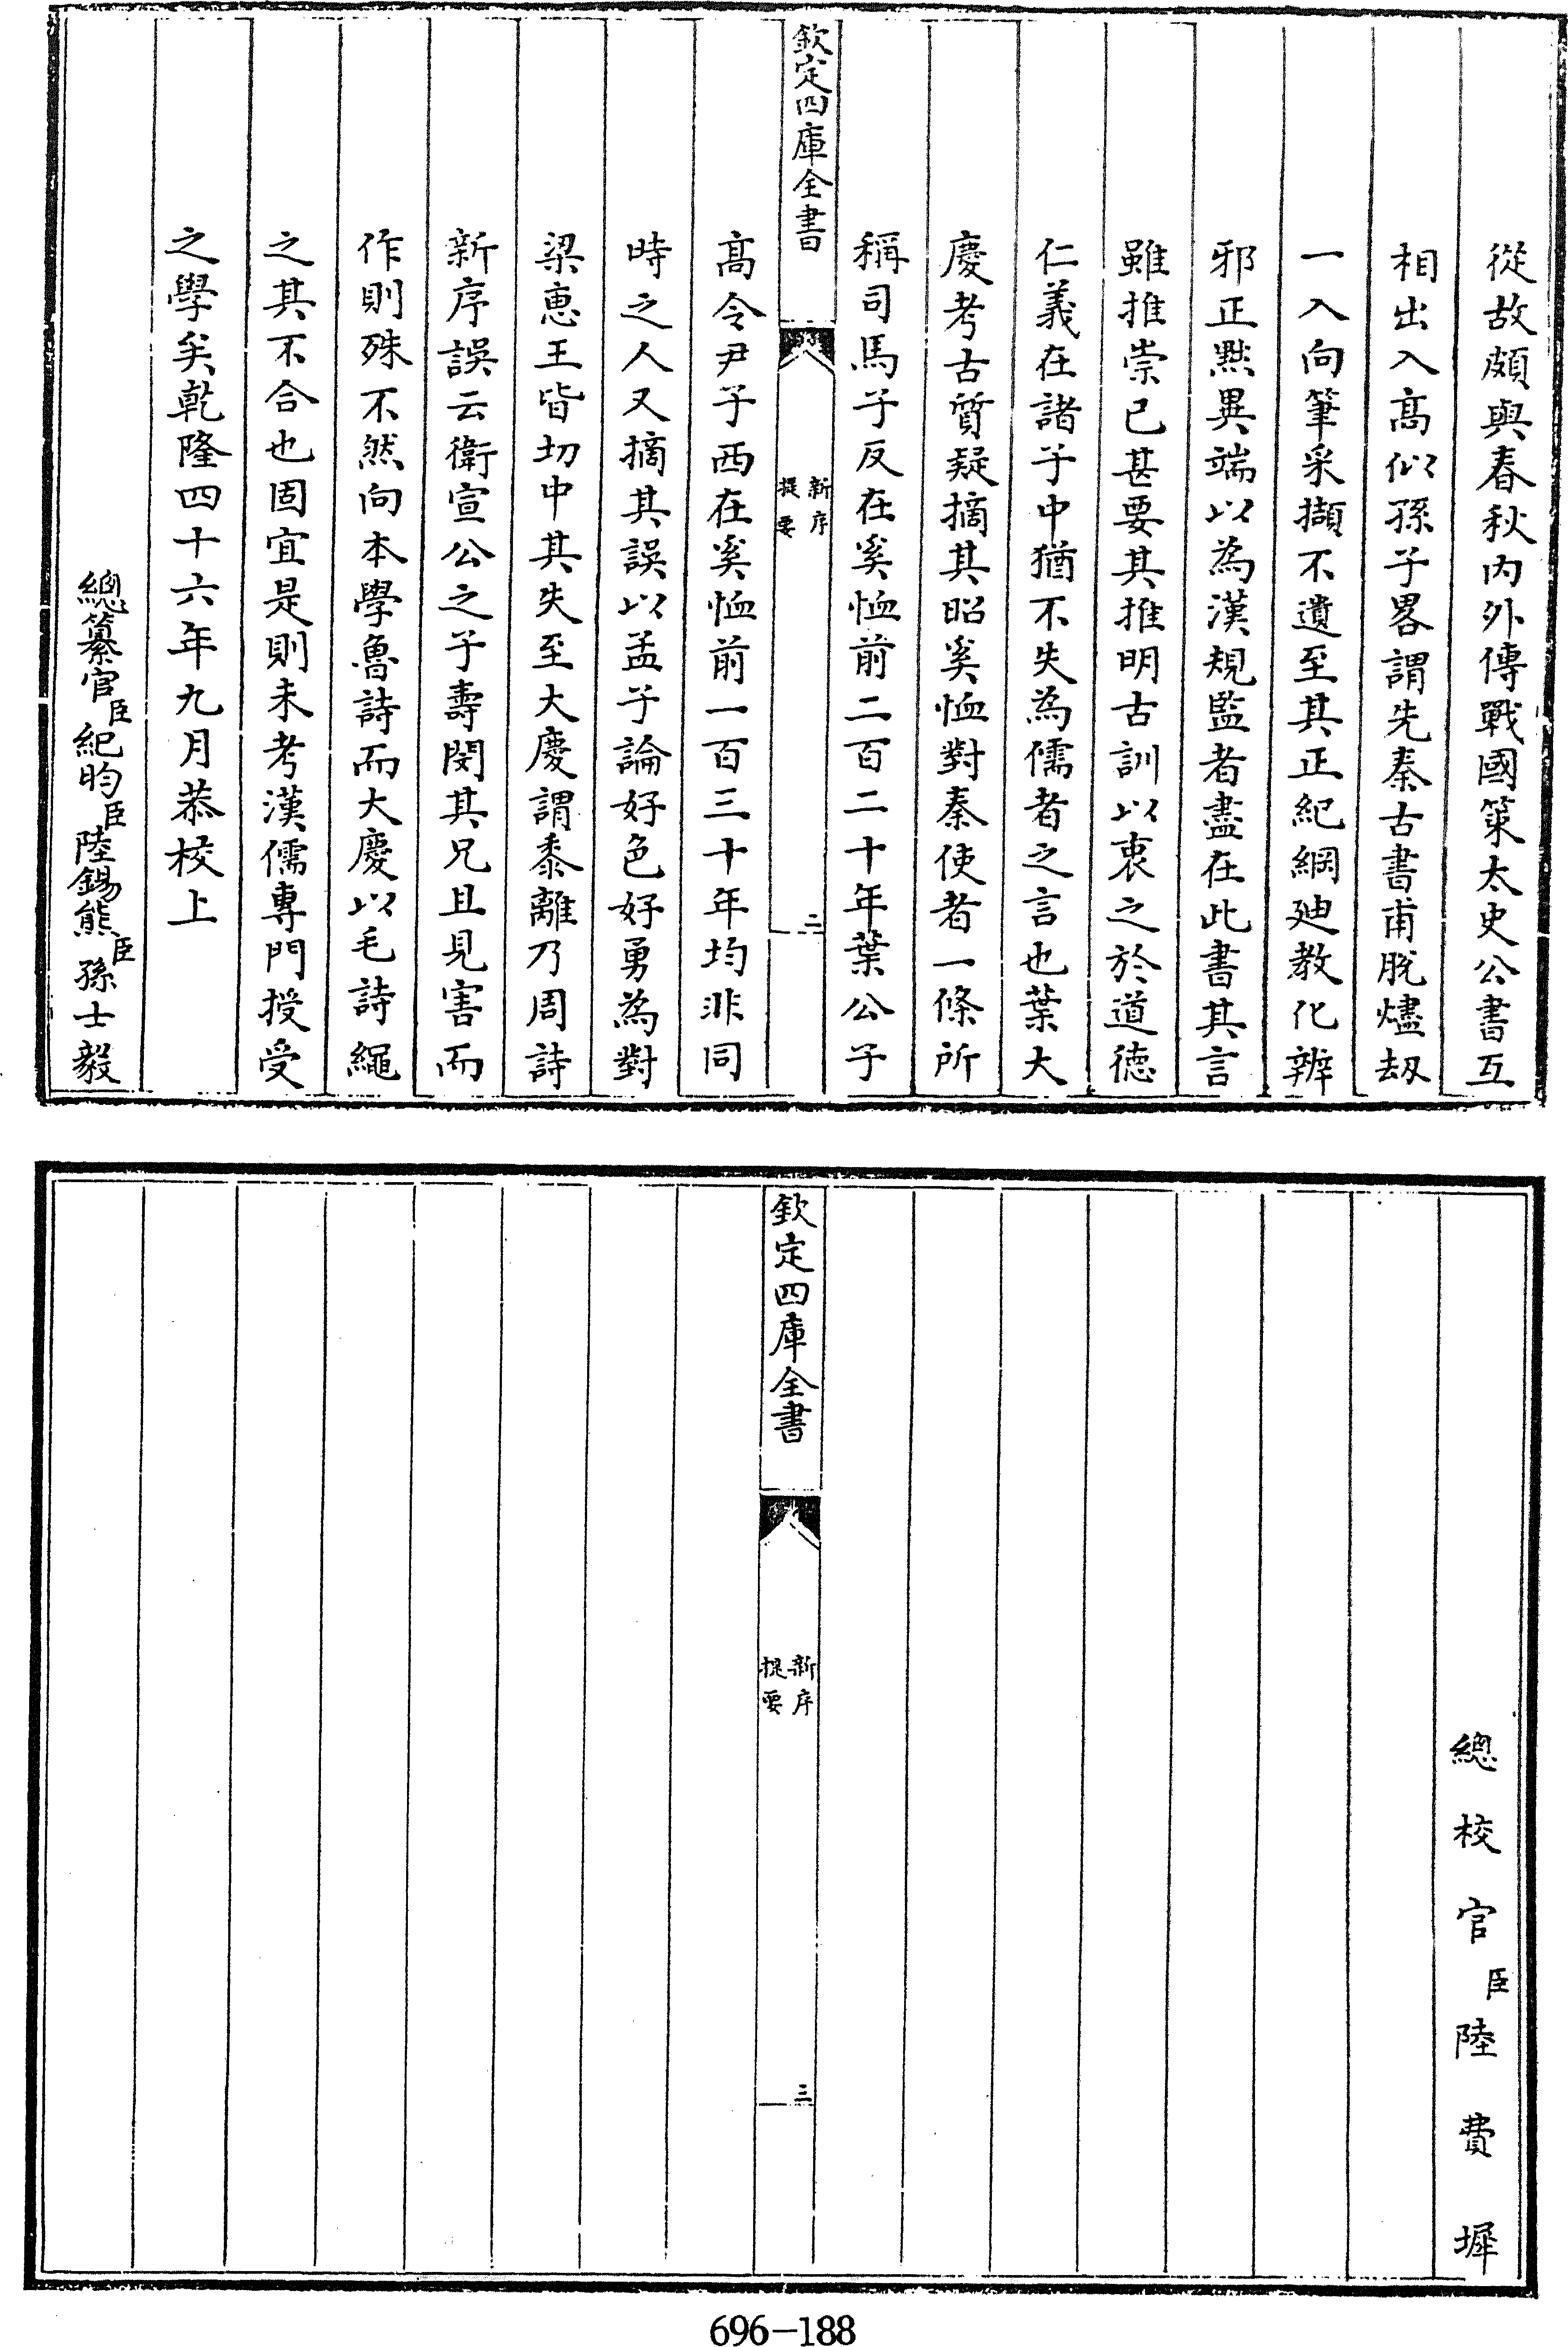 從故頗與春秋内外傳戰國策太史公書互
相出入髙似孫子畧謂先秦古書甫脱燼刼
一入向筆采擷不遺至其正紀綱廸教化辨
邪正黜異端以為漢規監者盡在此書其言
雖推崇已甚要其推明古訓以衷之於道徳
仁義在諸子中猶不失為儒者之言也葉大
慶考古質疑摘其昭奚恤對秦使者一條所
稱司馬子反在奚恤前二百二十年葉公子
欽定四庫全書
新序
提要
二
髙令尹子西在奚恤前一百三十年均非同
時之人又摘其誤以孟子論好色好勇為對
梁惠王皆切中其失至大慶謂黍離乃周詩
新序誤云衛宣公之子壽閔其兄且見害而
作則殊不然向本學魯詩而大慶以毛詩繩
之其不合也固宜是則未考漢儒專門授受
之學矣乾隆四十六年九月恭校上
總纂官臣紀昀臣陸錫熊臣孫士毅
總校官臣陸費墀
欽定四庫全書
新序
提要
三
696-188